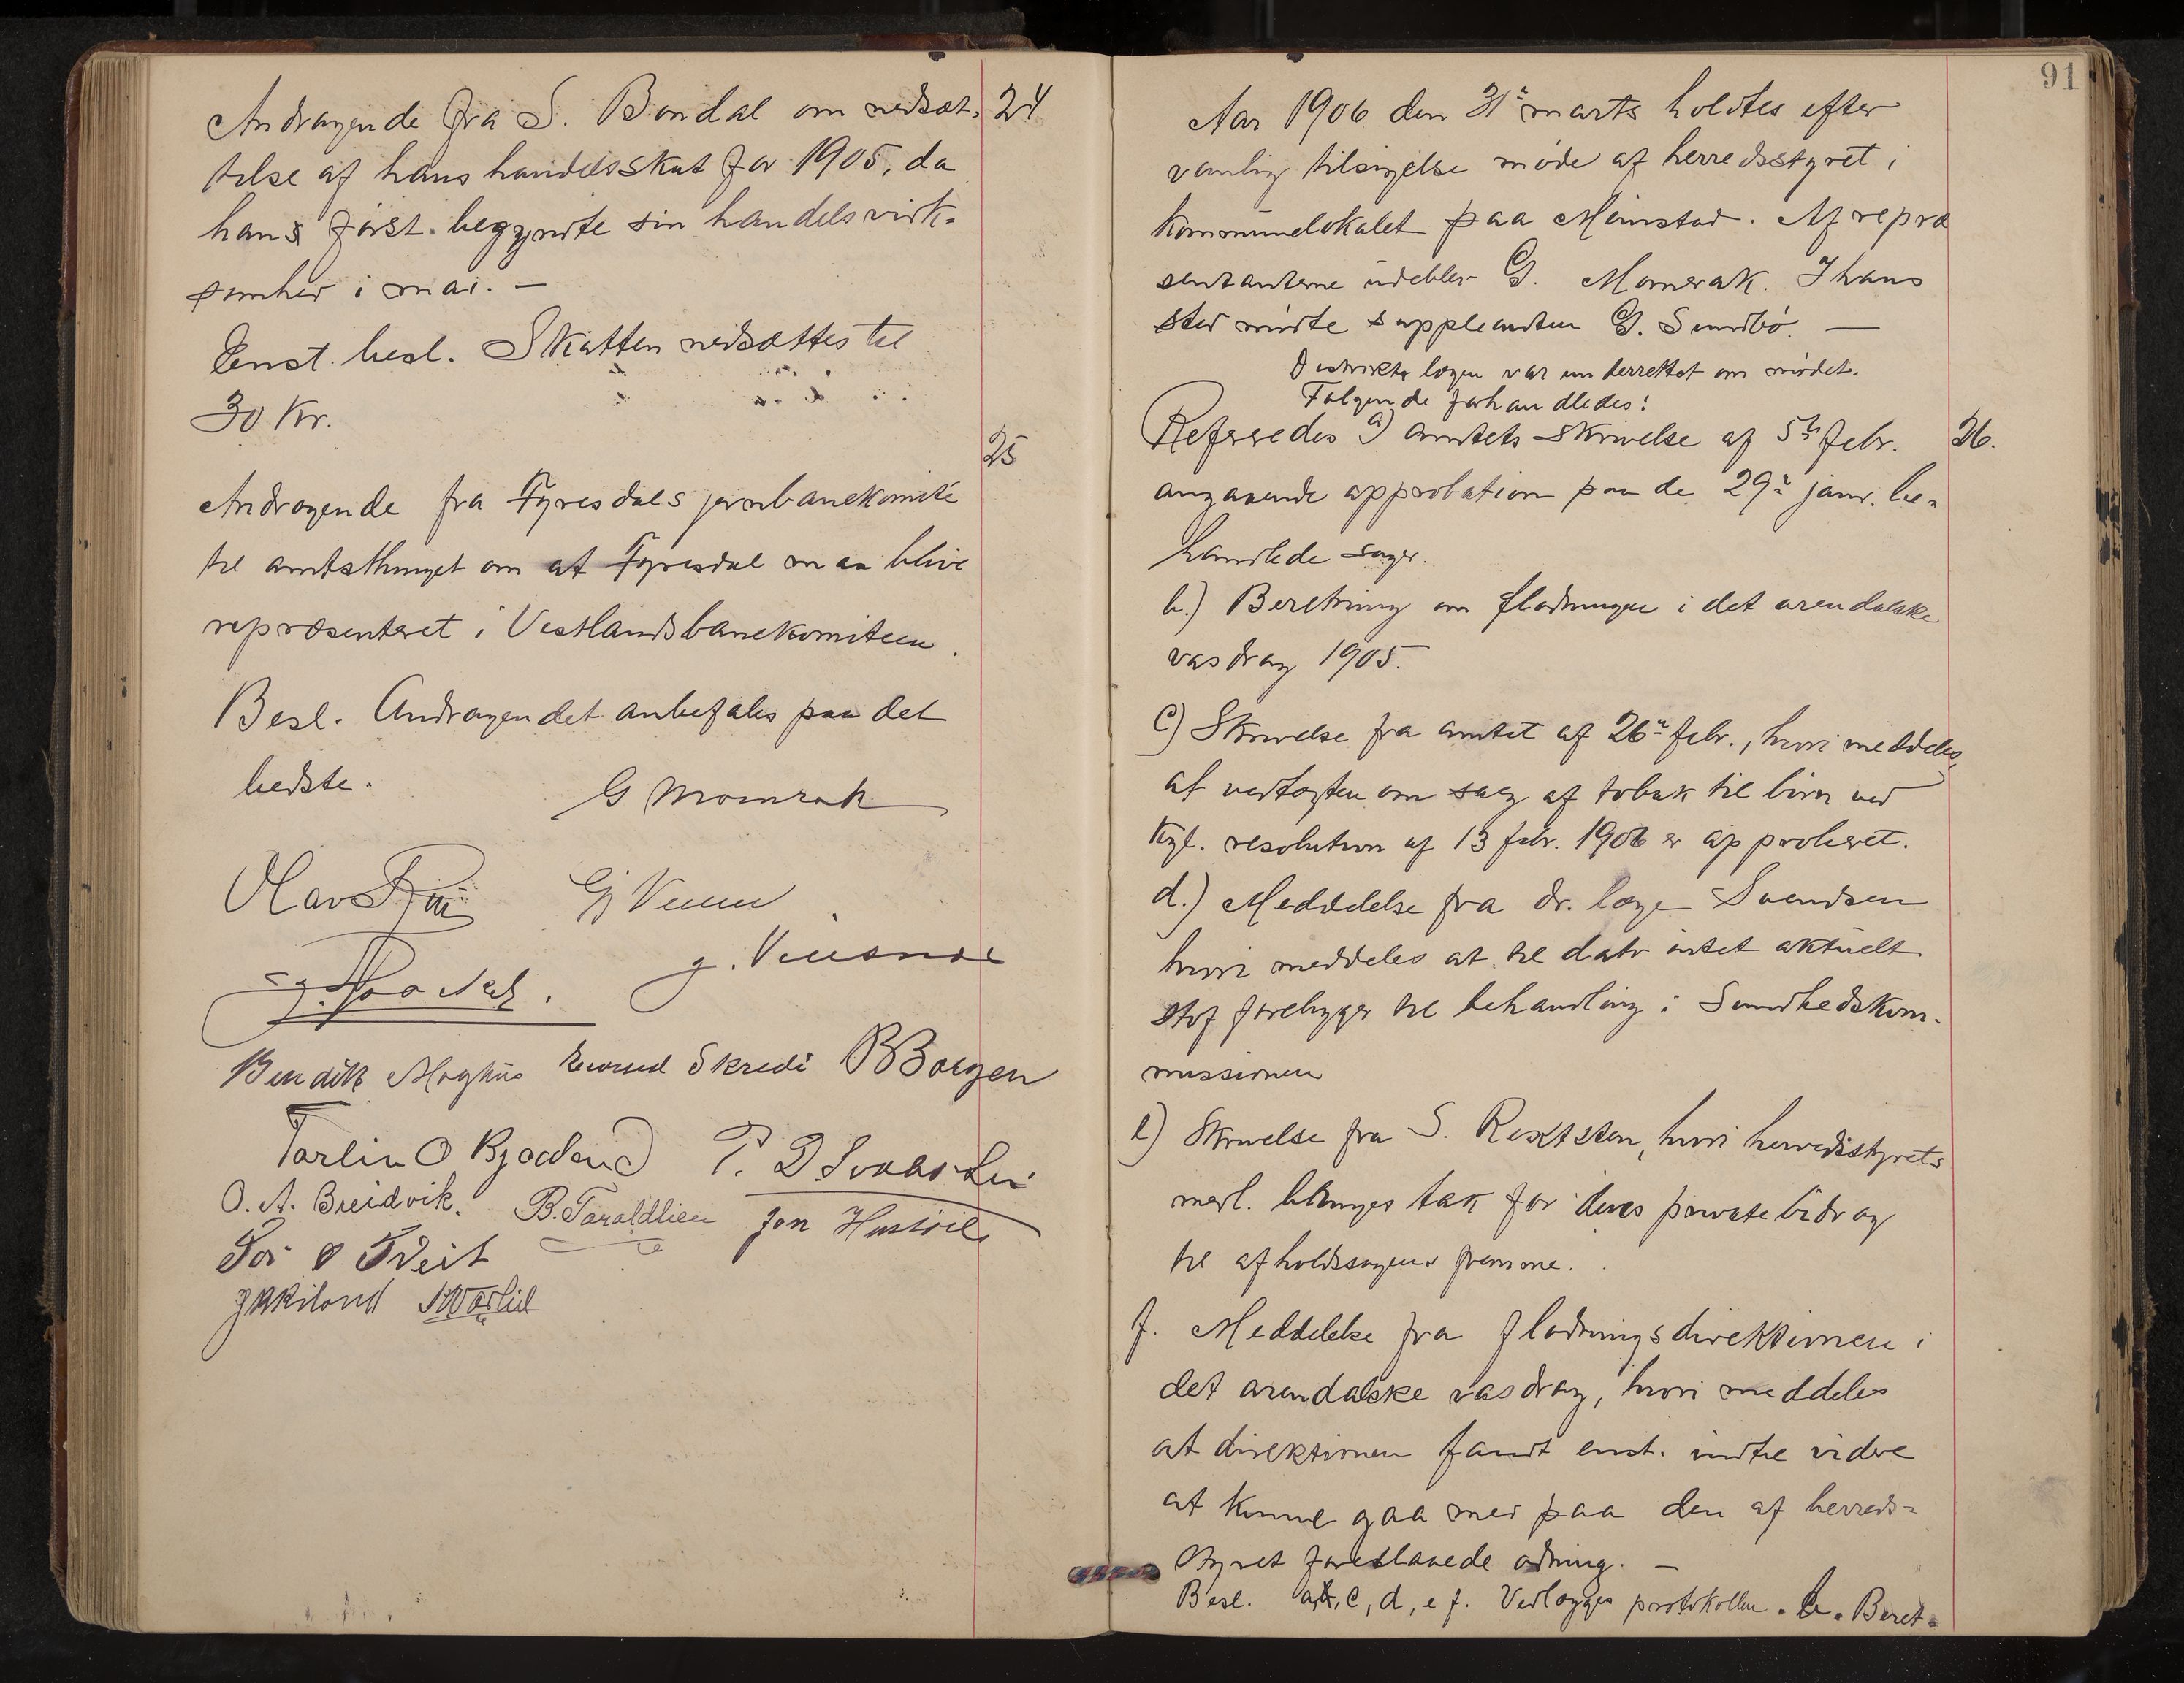 Andragende fra S. Bondal om nedsæt- 24
telse af hans handelsskat for 1905, da
hans først begyndte sin handelsvirk-
somhed i mai. —
Enst. besl. Skatten nedsættes til
30 Kr.
25
Andragende fra Fyresdals jernbanekomité
til amtsthinget om at Fyresdal maa blive
repræsenteret i Vestlandsbanekomiteen.
Besl. Andragendet anbefales paa det
bedste.
G Momrak
Olav
G. Veum
Bendik Moghus Skredi B Borgen
Tarlin O Bjaaland
O. A. Breidvik. B. Taraldlien Jon Hustvil
Tor O Tveit
91
Aar 1906 den 31te marts holdtes efter
vanlig tilsigelse møde af herredsstyret i
kommunelokalet paa Moinstad. Af repræ
sentanterne udeblev G. Momrak. I hans
sted mødte suppleanten G. Sundbø. —
Distriktslægen var underrettet om mødet.
Følgende forhandledes:
Refereredes a) amtets skrivelse af 5te febr. 26.
angaaende approbation paa de 29de janr. be-
handlede sager.
b.) Beretning om flødningen i det arendalske
vasdrag 1905.
c) Skrivelse fra amtet af 26de febr., hvori meddeles
at vedtægten om salg af tobak til børn ved
kgl. resolution af 13 febr. 1906 er approberet.
d.) Meddelelse fra dr. læge Svendsen
hvori meddeles at til dato intet aktuelt
stof foreligger til behandling i Sundhedskom-
missionen
e) Skrivelse fra S. hvori herredsstyrets
medl. bringes tak for deres private bidrag
til afholdssagens fremme.
f. Meddelelse fra flødningsdirektionen i
det arendalske vasdrag, hvori meddeles
at direktionen fandt enst. indtil videre
at kunne gaa med paa den af herreds-
styret foreslaaede ordning. —
Besl. a, c, d, e f. Vedlægges protokollen. b. Beret-